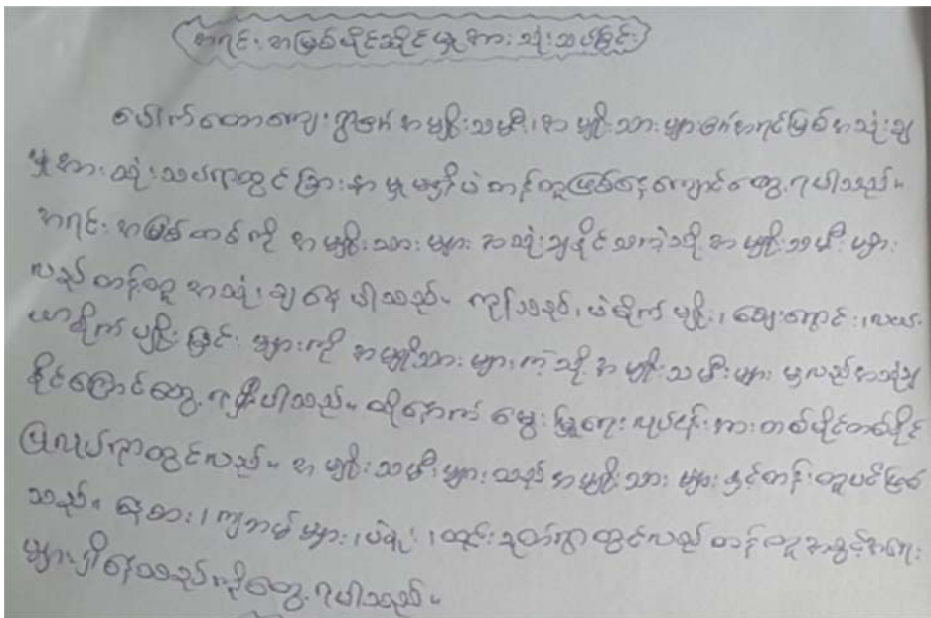 အရင်းအမြစ်ပိုင်ဆိုင်မှုအားသုံးသပ်ခြင်း
ပေါက်တောကျေးရွာ၏ အမျိုးသမီး၊ အမျိုးသားများ၏အရင်းမြစ်အသုံးချ
မှုအား သုံးသပ်ရာတွင် ခြားနားမှုမရှိပဲ တန်းတူဖြစ်နေကြောင်းတွေ့ရပါသည်။
အရင်းအမြစ်တစ်ကို အမျိုးသားများ အသုံးချနိုင်သကဲ့သို့ အမျိုးသမီးများ
လည်တန်းတူ အသုံးချနေပါသည်။ ကုပ်သစ်၊ ပဲစိုက်ပျိုး၊ ချေးငွေ၊ လယ်
ယာစိုက်ပျိုးခြင်းများကို အမျိုးသားများကဲ့သို့ အမျိုးသမီးများမှလည်အသုံးချ
နိုင်ကြောင်တွေ့ရှိပါသည်။ ထို့နောက် မွေးမြူရေးလုပ်ငန်းအားတစ်ပိုင်တစ်နိုင်
ပြုလုပ်ရာတွင်လည်။ အမျိုးသမီးများသည် အမျိုးသားများနှင့်တန်းတူပင်ဖြစ်
သည်။ ၊ ကျွဲ ၊ ထင်းခုတ်ရာတွင်လည် တန်တူအခွင့်အရေး
များရှိနေသည်ကိုတွေ့ရပါသည်။